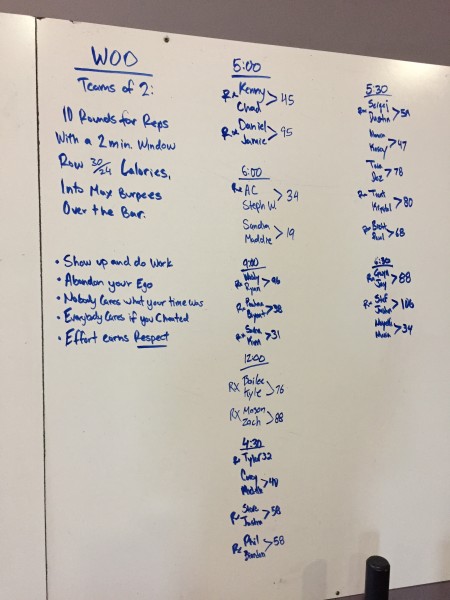 WOD
Teams of 2:
10 Rounds for Reps
With a 2 min. Window
Row 30/24 Calories,
Into Max Burpees
Over the Bar.
• Show up and do Work
• Abandon your Ego
• Nobody Cares what your time was
• Everybody Cares if you Cheated
• Effort earns Respect
5:00
Rx Kenny
Chad > 45
Rx Daniel
Jamie > 95
6:00
Rx AC
Steph W. > 34
Sandra
Maddie > 19
9:00
Rx
Ryan > 96
Rx
Bryant > 38
Rx
Kim > 31
12:00
RX Bailee
Kyle > 76
RX Mason
Zach > 88
4:30
Rx Tyler 32
Corey
Rx
Justin > 58
Rx Phil
> 58
5:30
Rx Sergej
Dustin
Kasey > 47
Jaz > 78
Rx
Krystal > 80
Rx Brett
> 68
6:30
Rx
Jay > 88
Rx
> 106
> 34